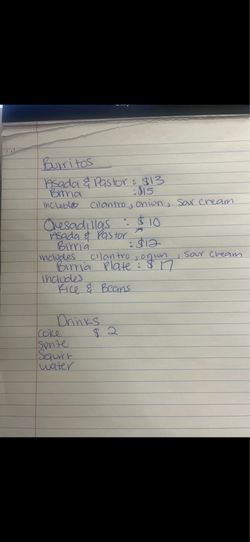 Burritos
Asada & Pastor : $13
Birria : $15
includes cilantro, onion, sour cream
Quesadillas : $10
Asada & Pastor
Birria : $12
includes cilantro, onion, sour cream
Birria Plate : $17
includes
Rice & Beans
Drinks
Coke $2
Sprite
Squirt
Water